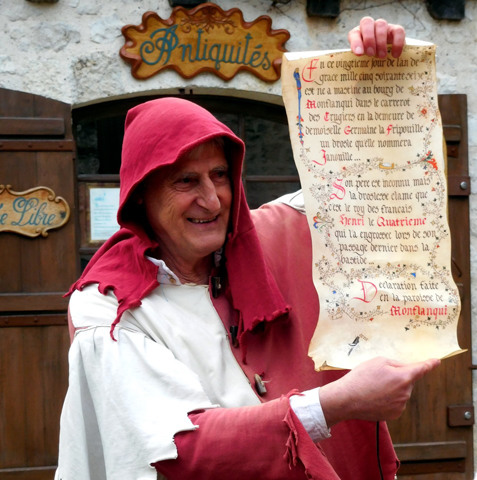 Antiquités
e Libre
En ce vingtieme jour de l'an de
grace mille cinq soixante sei
est ne a matine au bourg de
Monflanqui dans le carrerot
des Tuyiers en la demeure de
demoiselle Germaine la Fripouille
un drosle qu'elle nommera
Janouille...
Son pere est inconnu mais
la droslesse clame que
c'est le roy des français
Henri le Quatrieme
qui l'a engrossee lors de son
passage dernier dans la
bastide...
Declaration faite
en la paroisse de
Monflanqui